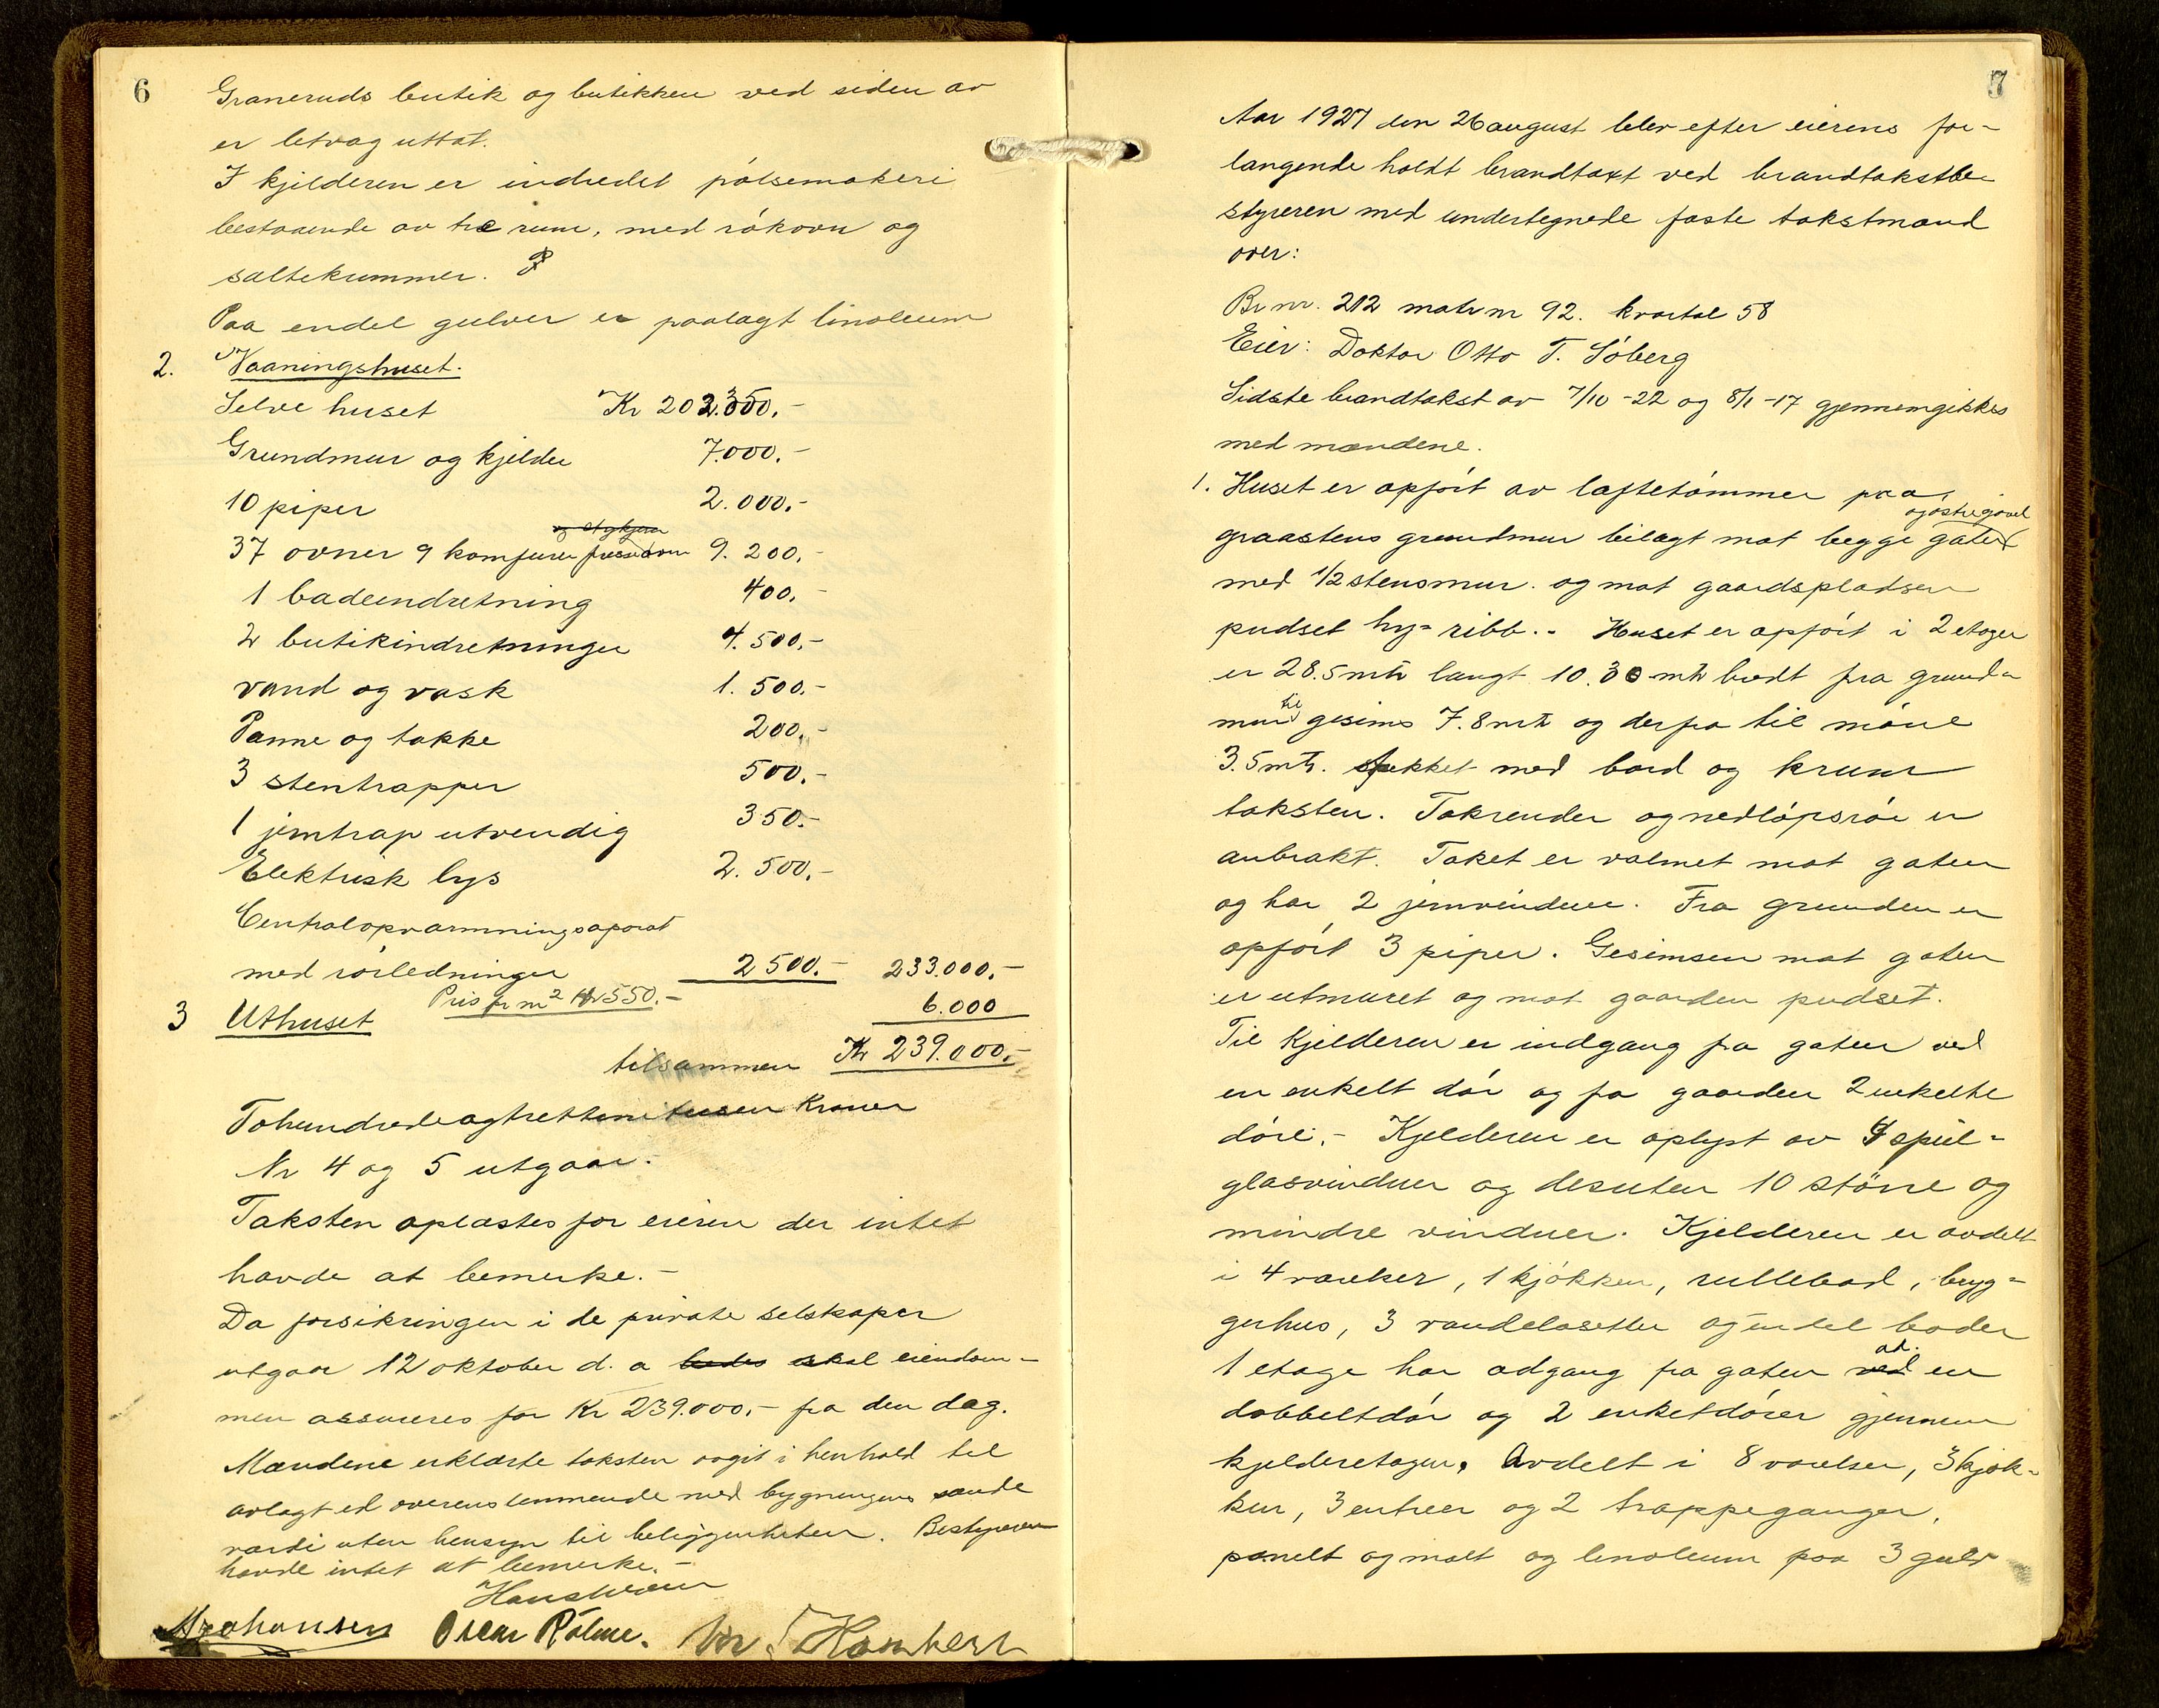 6
Graneruds butik og butikken ved siden av
er letvæg uttat.
I kjelderen er indredet pölsemakeri
bestaaende av tre rum, med rökovn og
saltekummer.
Paa endel gulver er paalagt linoleum
2. Vaaningshuset.
Selve huset Kr 202.350.-
Grundmur og kjelder 7.000.-
10 piper 2.000.-
37 ovner 9 komfurer 9.200.-
1 badeindretning 400.-
2 butikindretninger 4.500.-
vand og vask 1.500.-
Panne og takke 200.-
3 stentrapper 500.-
1 jerntrap utvendig 350.-
Elektrisk lys 2.500.-
Centralopvarmningsaparat
med rörledninger 2500.- 233.000.-
Pris pr m² Kr 550.-
3 Uthuset 6.000
tilsammen Kr 239.000.-
Tohundredeogtrettenitusen Kroner
Nr 4 og 5 utgaar.-
Taksten oplæstes for eieren der intet
havde at bemerke.-
Da forsikringen i de private selskaper
utgaar 12 oktober d. a skal eiendom-
men assureres for Kr 239.000,- fra den dag.
Mændene erklærte taksten avgit i henhold til
avlagt ed overenstemmende med bygningens sande
værdi uten hensyn til beliggenheten. Bestyreren
havde intet at bemerke.-
Oscar Rölme.
7
Aar 1927 den 26 august blev efter eierens for-
langende holdt brandtaxt ved brandtakstbe-
styreren med undertegnede faste takstmænd
over:
Br nr. 212 matr nr 92. kvartal 58
Eier: Doktor Otto T. Söberg
Sidste brandtakst av 7/10-22 og 8/1-17 gjennemgikkes
med mændene.
1. Huset er opfört av laftetömmer paa
og östre gavel
graastens grundmur bilagt mot begge gater
med 1/2 stensmur. og mot gaardspladsen
pudset hy-ribb.- Huset er opfört i 2 etager
er 28.5 mtr langt 10.30 mtr bredt fra grund-
mur til gesims 7.8 mtr og derfra til möne
3.5 mtr. tækket med bord og krum
taksten. Takrender og nedlöpsrör er
anbrakt. Taket er valmet mot gaten
og har 2 jernvinduer. Fra grunden er
opfört 3 piper. Gesimsen mot gaten
er utmuret og mot gaarden pudset.
Til kjelderen er indgang fra gaten ved
en enkelt dör og fra gaarden 2 enkelte
döre.- Kjelderen er oplyst av 4 speil-
glasvinduer og desuten 10 större og
mindre vinduer. Kjelderen er avdelt
i 4 værelser, 1 kjökken, rullebod, bryg-
gerhus, 3 vandclosetter og endel boder
1 etage har adgang fra gaten ad en
dobbeltdör og 2 enkeltdörer gjennem
kjelderetagen. Avdelt i 8 værelser, 3 kjök-
ken, 3 entreer og 2 trappeganger.
panelt og malt og linoleum paa 3 gulv